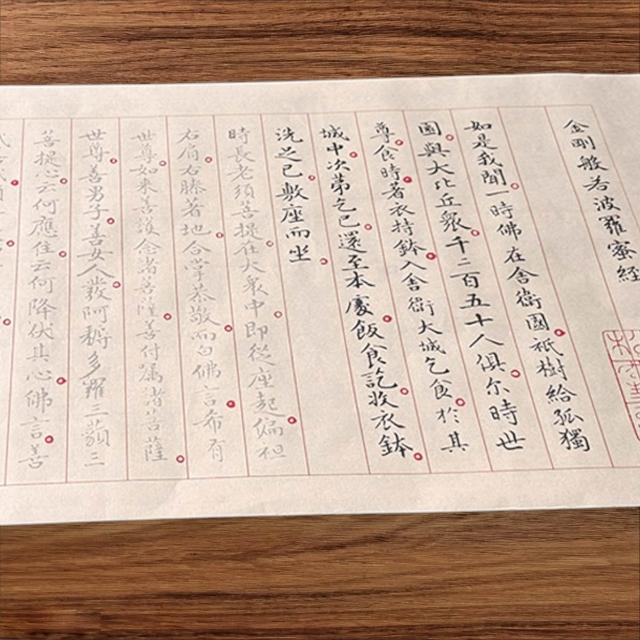 金剛般若波羅蜜經
如是我聞一時佛在舍衛國祇樹給孤獨
園與大比丘眾千二百五十人俱尔時世
尊食時著衣持鉢入舍衛大城乞食於其
城中次第乞已還至本處飯食訖收衣鉢
洗足已敷座而坐
時長老須菩提在大眾中即從座起偏袒
右肩右膝著地合掌恭敬而白佛言希有
世尊如來善護念諸菩薩善付属諸菩薩
世尊善男子善女人發阿耨多羅三藐三
菩提心云何應住云何降伏其心佛言善